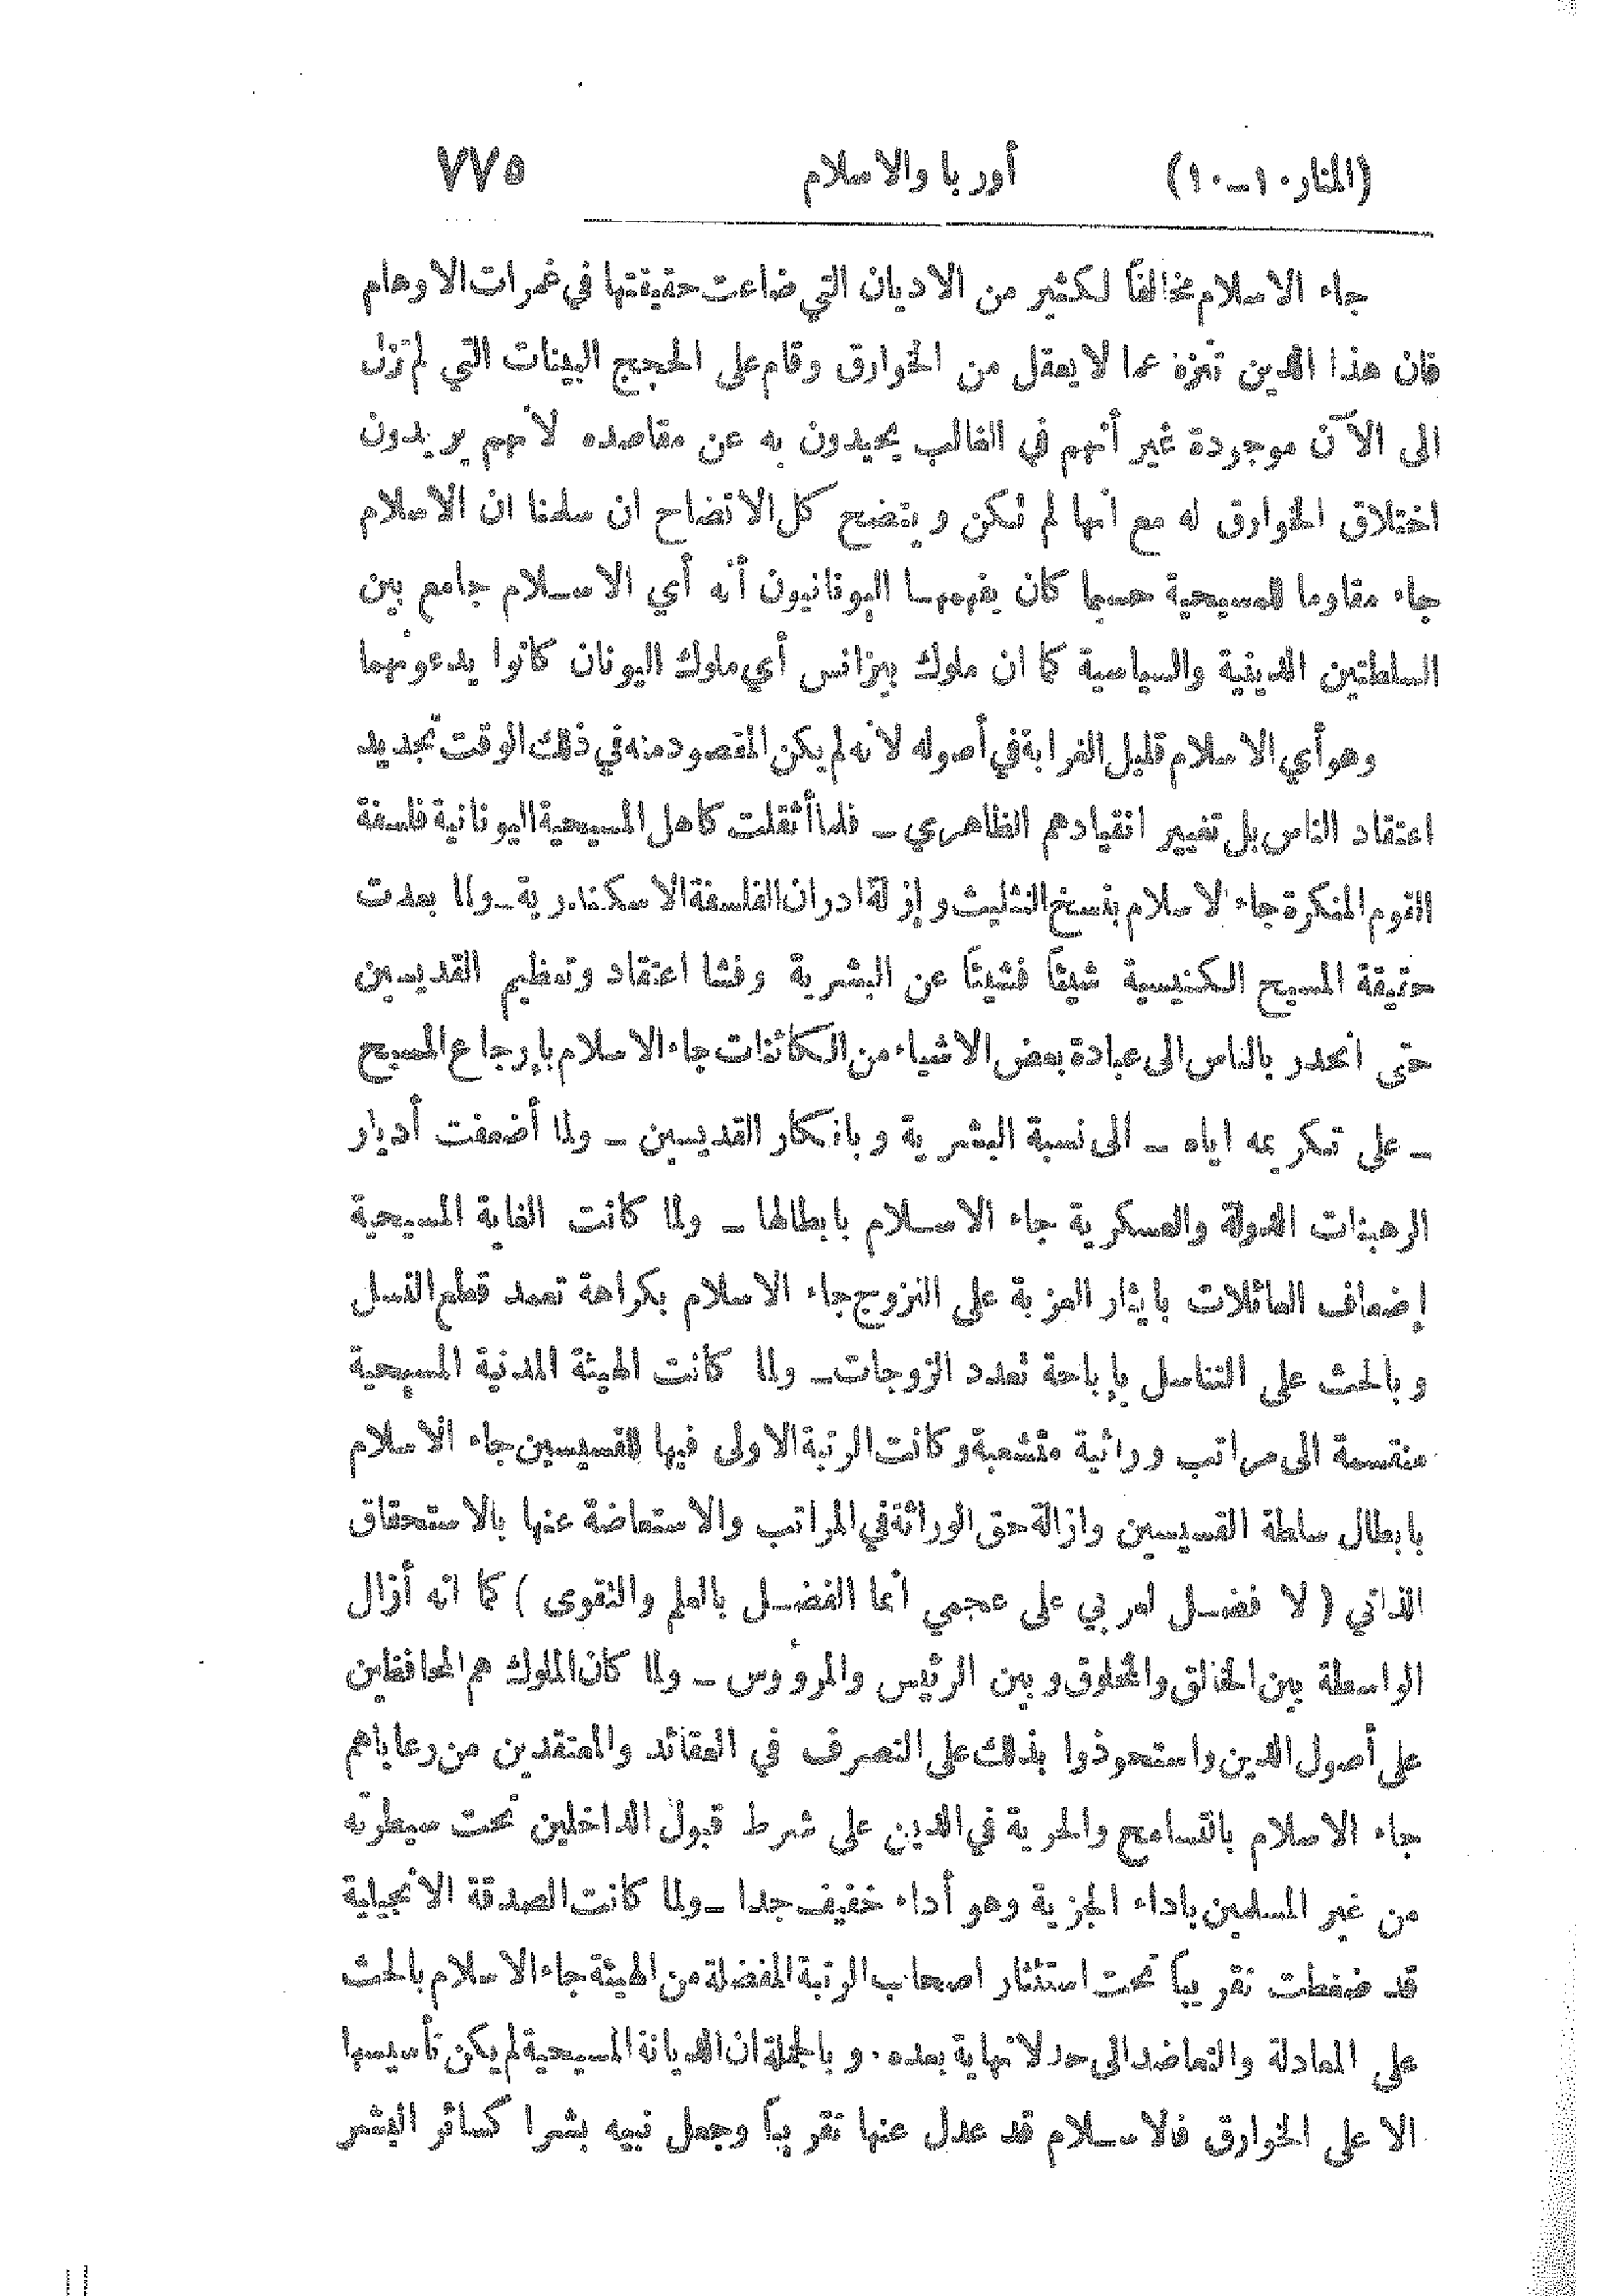 (المنار ١٠ـ١٠) أوربا والاسلام ٧٧٥
جاء الاسلام مخالفاً لكثير من الاديان التي ضاعت حقيقتها في غمرات الاوهام
فان هذا الدين تنزه عما لا يعقل من الخوارق وقام على الحجج البينات التي لم تزل
الى الآن موجودة غير أنهم في الغالب يحيدون به عن مقاصده لأنهم يريدون
اختلاق الخوارق له مع انها لم تكن ويتضح كل الاتضاح ان سلمنا ان الاسلام
جاء مقاوما للمسيحية حسبما كان يفهمها اليونانيون أنه أي الاسلام جامع بين
السلطتين الدينية والسياسية كما ان ملوك بيزانس أي ملوك اليونان كانوا يدعونهما
وهو أي الاسلام قليل الغرابة في أصوله لانه لم يكن المقصود منه في ذلك الوقت تجديد
اعتقاد الناس بل تغيير انقيادهم الظاهري ـ فلما أثقلت كاهل المسيحية اليونانية فلسفة
القوم المنكرة جاء الاسلام بنسخ التثليث وإزالة ادران الفلسفة الاسكندرية ـ ولما بعدت
حقيقة المسيح الكنيسية شيئاً فشيئاً عن البشرية وفشا اعتقاد وتعظيم القديسين
حتى انحدر بالناس الى عبادة بعض الاشياء من الكائنات جاء الاسلام بإرجاع المسيح
ـ على تكريمه اياه ـ الى نسبة البشرية وبانكار القديسين ـ ولما أضعفت أديار
الرهبنات الدولة والعسكرية جاء الاسلام بابطالها ـ ولما كانت الغاية المسيحية
إضعاف العائلات بايثار العزبة على التزوج جاء الاسلام بكراهة تعمد قطع النسل
وبالحث على التناسل بإباحة تعدد الزوجات ـ ولما كانت الهيئة المدنية المسيحية
منقسمة الى مراتب وراثية متشعبة وكانت الرتبة الاولى فيها للقسيسين جاء الاسلام
بابطال سلطة القسيسين وازالة حق الوراثة في المراتب والاستعاضة عنها بالاستحقاق
الذاتي ( لا فضل لعربي على عجمي انما الفضل بالعلم والتقوى ) كما انه أزال
الواسطة بين الخالق والمخلوق وبين الرئيس والمرؤوس ـ ولما كان الملوك هم المحافظين
على أصول الدين واستحوذوا بذلك على التصرف في العقائد والمعتقدين من رعاياهم
جاء الاسلام بالتسامح والحرية في الدين على شرط قبول الداخلين تحت سيطرته
من غير المسلمين باداء الجزية وهو أداء خفيف جدا ـ ولما كانت الصدقة الانجيلية
قد ضغطت تقريباً تحت استئثار اصحاب الرتبة المفضلة من الهيئة جاء الاسلام بالحث
على المعادلة والتعاضد الى حد لا نهاية بعده . وبالجملة ان الديانة المسيحية لم يكن تأسيسها
الا على الخوارق فالاسلام قد عدل عنها تقريباً وجعل نبيه بشرا كسائر البشر